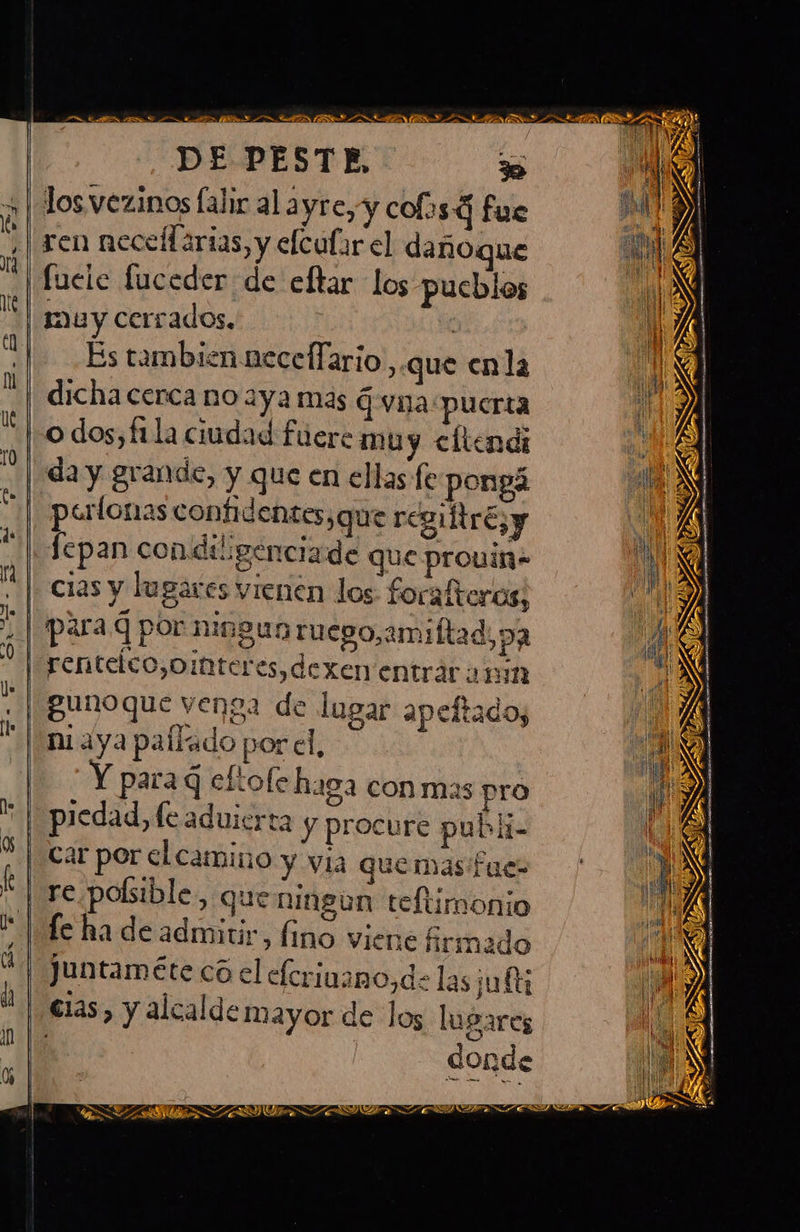 DE PESTE, 30
los vezinos ſalir al ayre, y coſas q̃ fue
ren neceſſarias, y eſcuſar el daño que
ſuele ſuceder de eſtar los pueblos
muy cerrados.
Es tambien neceſſario, que en la
dicha cerca no aya mas q̃ vna puerta
o dos, ſi la ciudad fuere muy eſtendi
da y grande, y que en ellas ſe pongã
perſonas confidentes, que regiſtrẽ, y
ſepan con diligencia de que prouin-
cias y lugares vienen los foraſteros,
para q̃ por ningun ruego, amiſtad, pa
renteſco, o interes, dexen entrar a nin
guno que venga de lugar apeſtado,
ni aya paſſado por el.
Y para q̃ eſto ſe haga con mas pro
piedad, ſe aduierta y procure publi-
car por el camino y via que mas fue-
re poſsible, que ningun teſtimonio
ſe ha de admitir, ſino viene firmado
juntamẽte cõ el eſcriuano, de las juſti
cias, y alcalde mayor de los lugares
donde